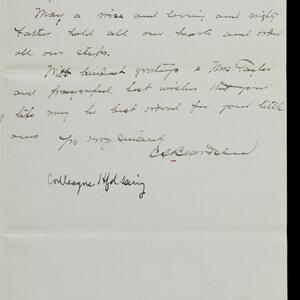 May a wise and loving and mighty
Father hold all our hearts and order
all our steps.
With kindest greetings to Mrs. Taylor
and prayerful best wishes that your
life may be best ordered for your little
ones
Yrs very sincerely